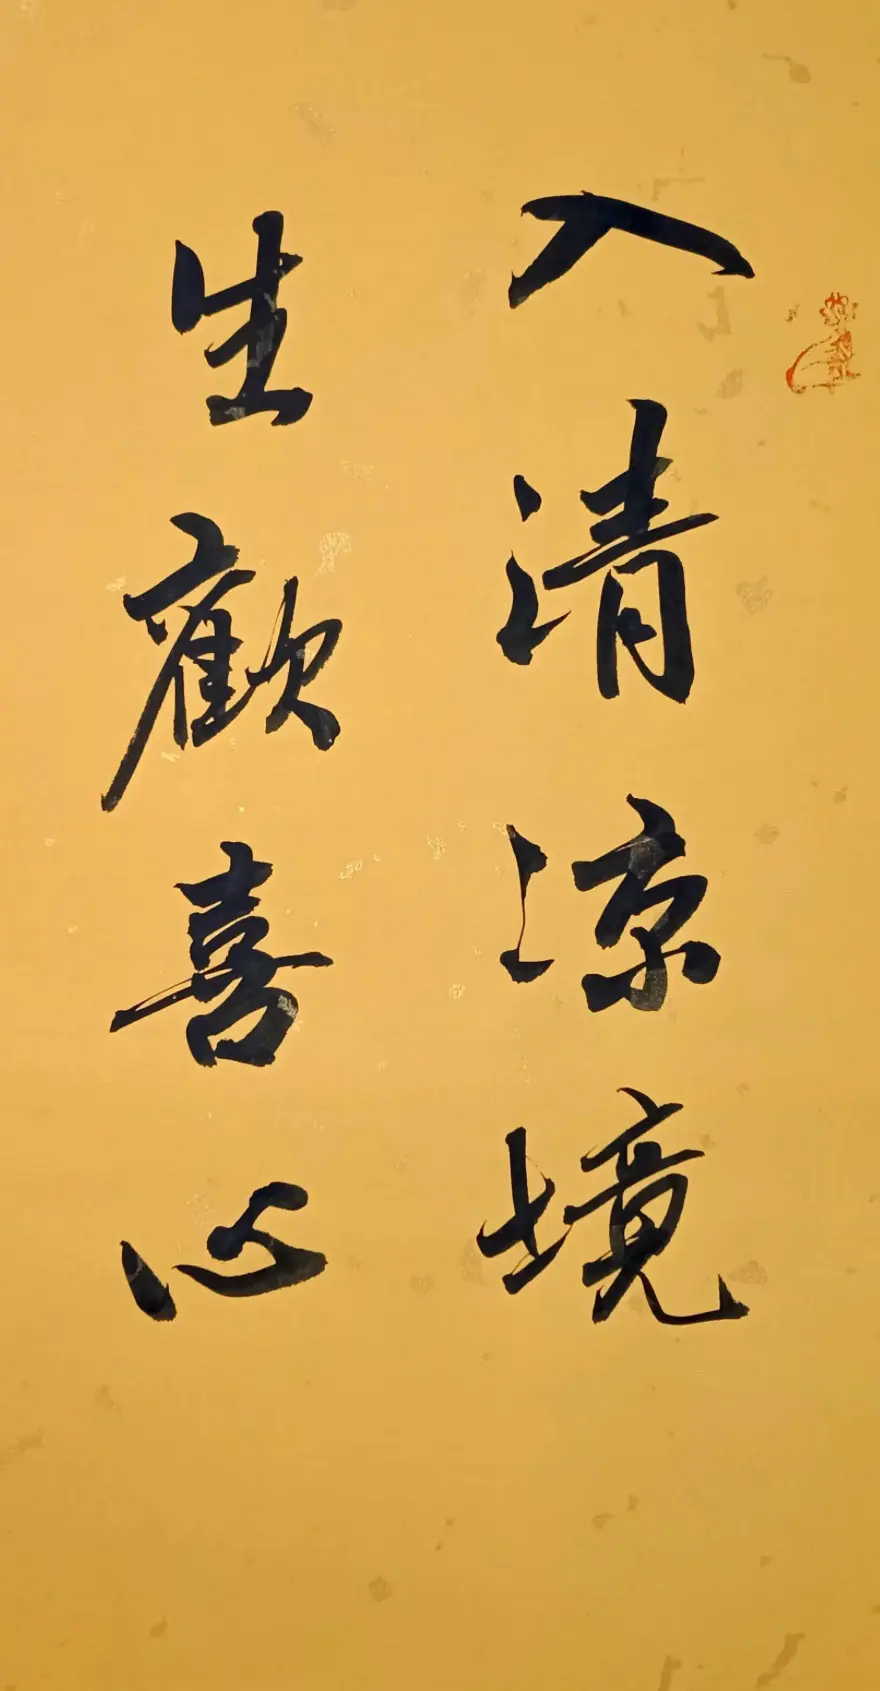 入清涼境
生歡喜心